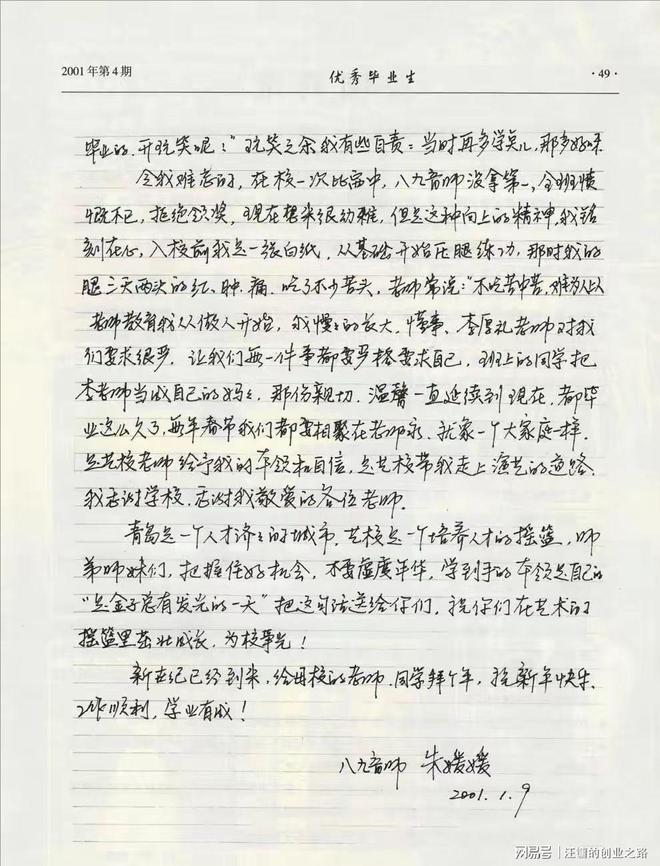 2001年第4期
优秀毕业生
·49·
毕业的.开玩笑呢?"玩笑之余我有些自责:当时再多学点儿,那多好呀
令我难忘的,在校一次比赛中,八九音师没拿第一,全班愤
慨不已,拒绝领奖,现在想来很幼稚,但是这种向上的精神,我铭
刻在心,入校前我是一张白纸,从基础开始压腿练功,那时我的
腿三天两头的红、肿.痛.吃了不少苦头,老师常说:"不吃苦中苦,难为人上人
老师教育我从做人开始,我慢慢的长大.懂事.李厚礼老师对我
们要求很严.让我们每一件事都要严格要求自己,班上的同学把
李老师当成自己的妈妈.那份亲切.温馨一直延续到现在.都毕
业这么久了,每年春节我们都要相聚在老师家.就象一个大家庭一样.
是艺校老师给予我的本领和自信,是艺校带我走上演艺的道路.
我感谢学校.感谢我敬爱的各位老师.
青岛是一个人才济济的城市.艺校是一个培养人才的摇篮,师
弟师妹们,把握住好机会,不要虚度年华,学到手的本领是自己的
"是金子总有发光的一天"把这句话送给你们,祝你们在艺术的
摇篮里茁壮成长,为校争光!
新世纪已经到来,给母校的老师.同学拜个年,祝新年快乐.
工作顺利,学业有成!
八九音师 朱媛媛
2001.1.9
网易号 | 汪镛的创业之路